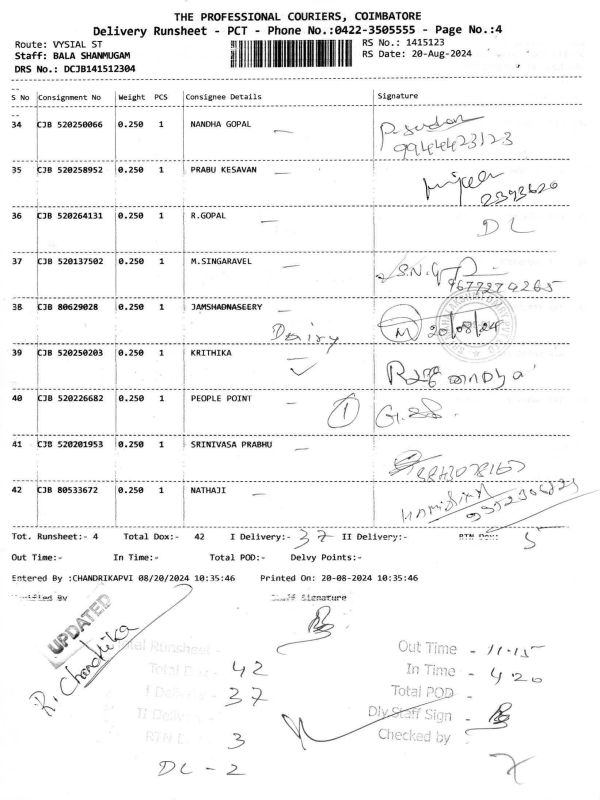 THE PROFESSIONAL COURIERS, COIMBATORE
Delivery Runsheet - PCT - Phone No.:0422-3505555 - Page No.:4
Route: VYSIAL ST RS No.: 1415123
Staff: BALA SHANMUGAM RS Date: 20-Aug-2024
DRS No.: DCJB141512304
S No Consignment No Weight PCS Consignee Details Signature
34 CJB 520250066 0.250 1 NANDHA GOPAL
9944423123
35 CJB 520258952 0.250 1 PRABU KESAVAN
2393620
36 CJB 520264131 0.250 1 R.GOPAL DL
37 CJB 520137502 0.250 1 M.SINGARAVEL S.N.G
9677274265
38 CJB 80629028 0.250 1 JAMSHADNASEERY M 20/08/24
Dairy
39 CJB 520250203 0.250 1 KRITHIKA
40 CJB 520226682 0.250 1 PEOPLE POINT 1
41 CJB 520201953 0.250 1 SRINIVASA PRABHU
42 CJB 80533672 0.250 1 NATHAJI
Tot. Runsheet:- 4 Total Dox:- 42 I Delivery:- 37 II Delivery:- RTN Dox: 5
Out Time:- In Time:- Total POD:- Delvy Points:-
Entered By :CHANDRIKAPVI 08/20/2024 10:35:46 Printed On: 20-08-2024 10:35:46
Verified By Staff Signature
UPDATED
R. Chandrika
Total Runsheet -
Total Dox - 42
I Delivery - 37
II Delivery -
RTN D 3
DL - 2
Out Time - 11.15
In Time - 4.20
Total POD -
Dly.Staff Sign -
Checked by